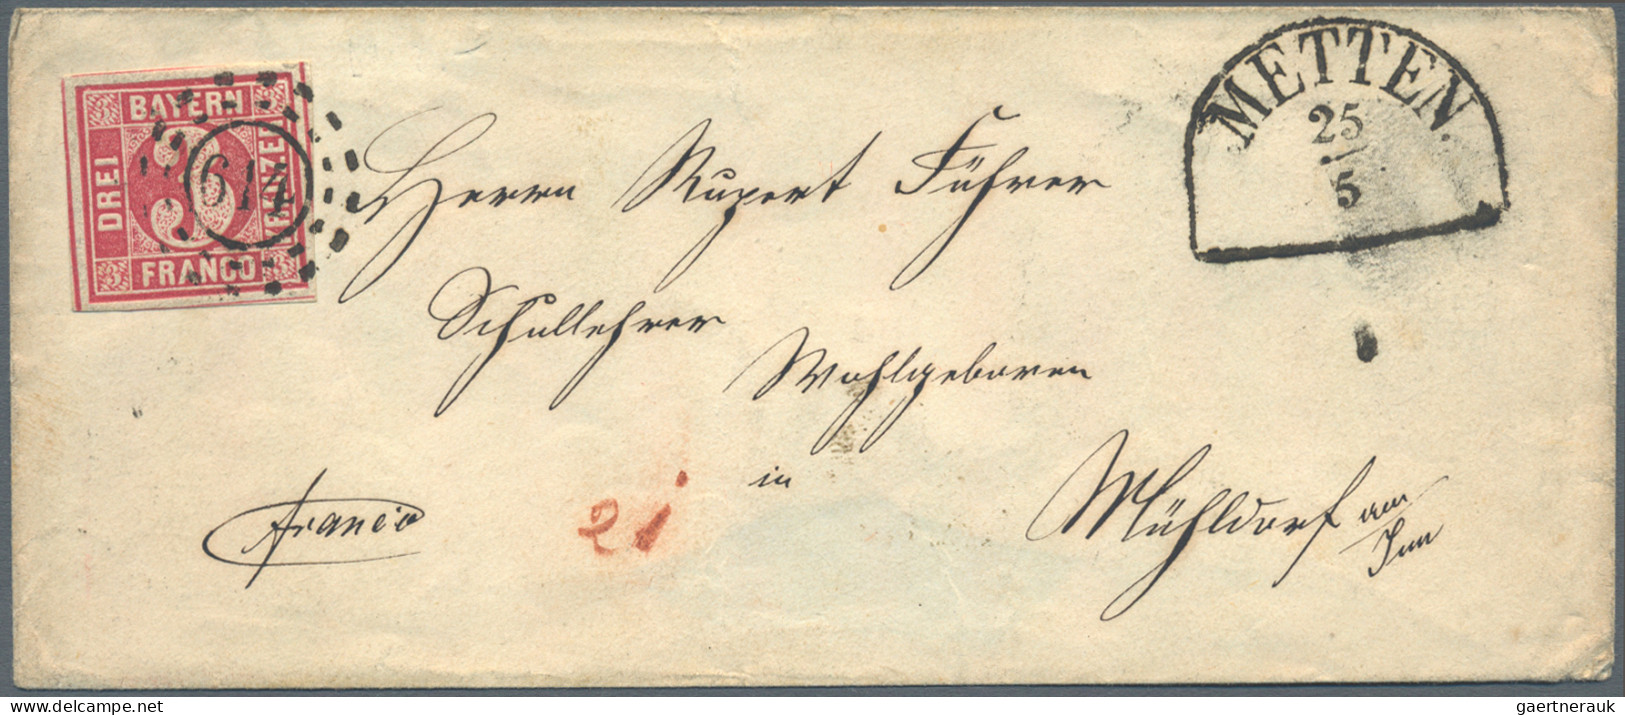 BAYERN
DREI
KREUZER
FRANCO
3
3
3
3
614
METTEN.
25
5
Herrn Rupert Führer
Schullehrer
Wohlgeboren
in
Mühldorf am
Inn
franco
21
gaertnerauk